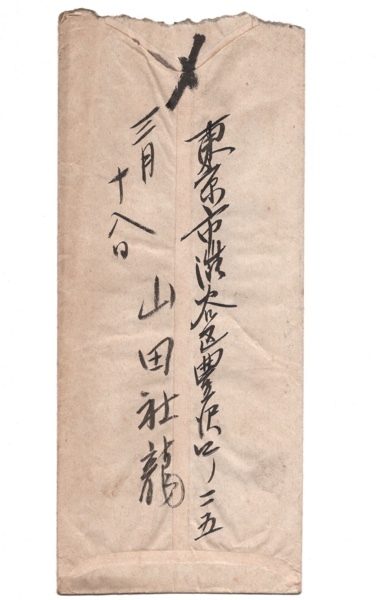 東京市渋谷区豊沢町一ノ二五
三月十八日
山田社龍